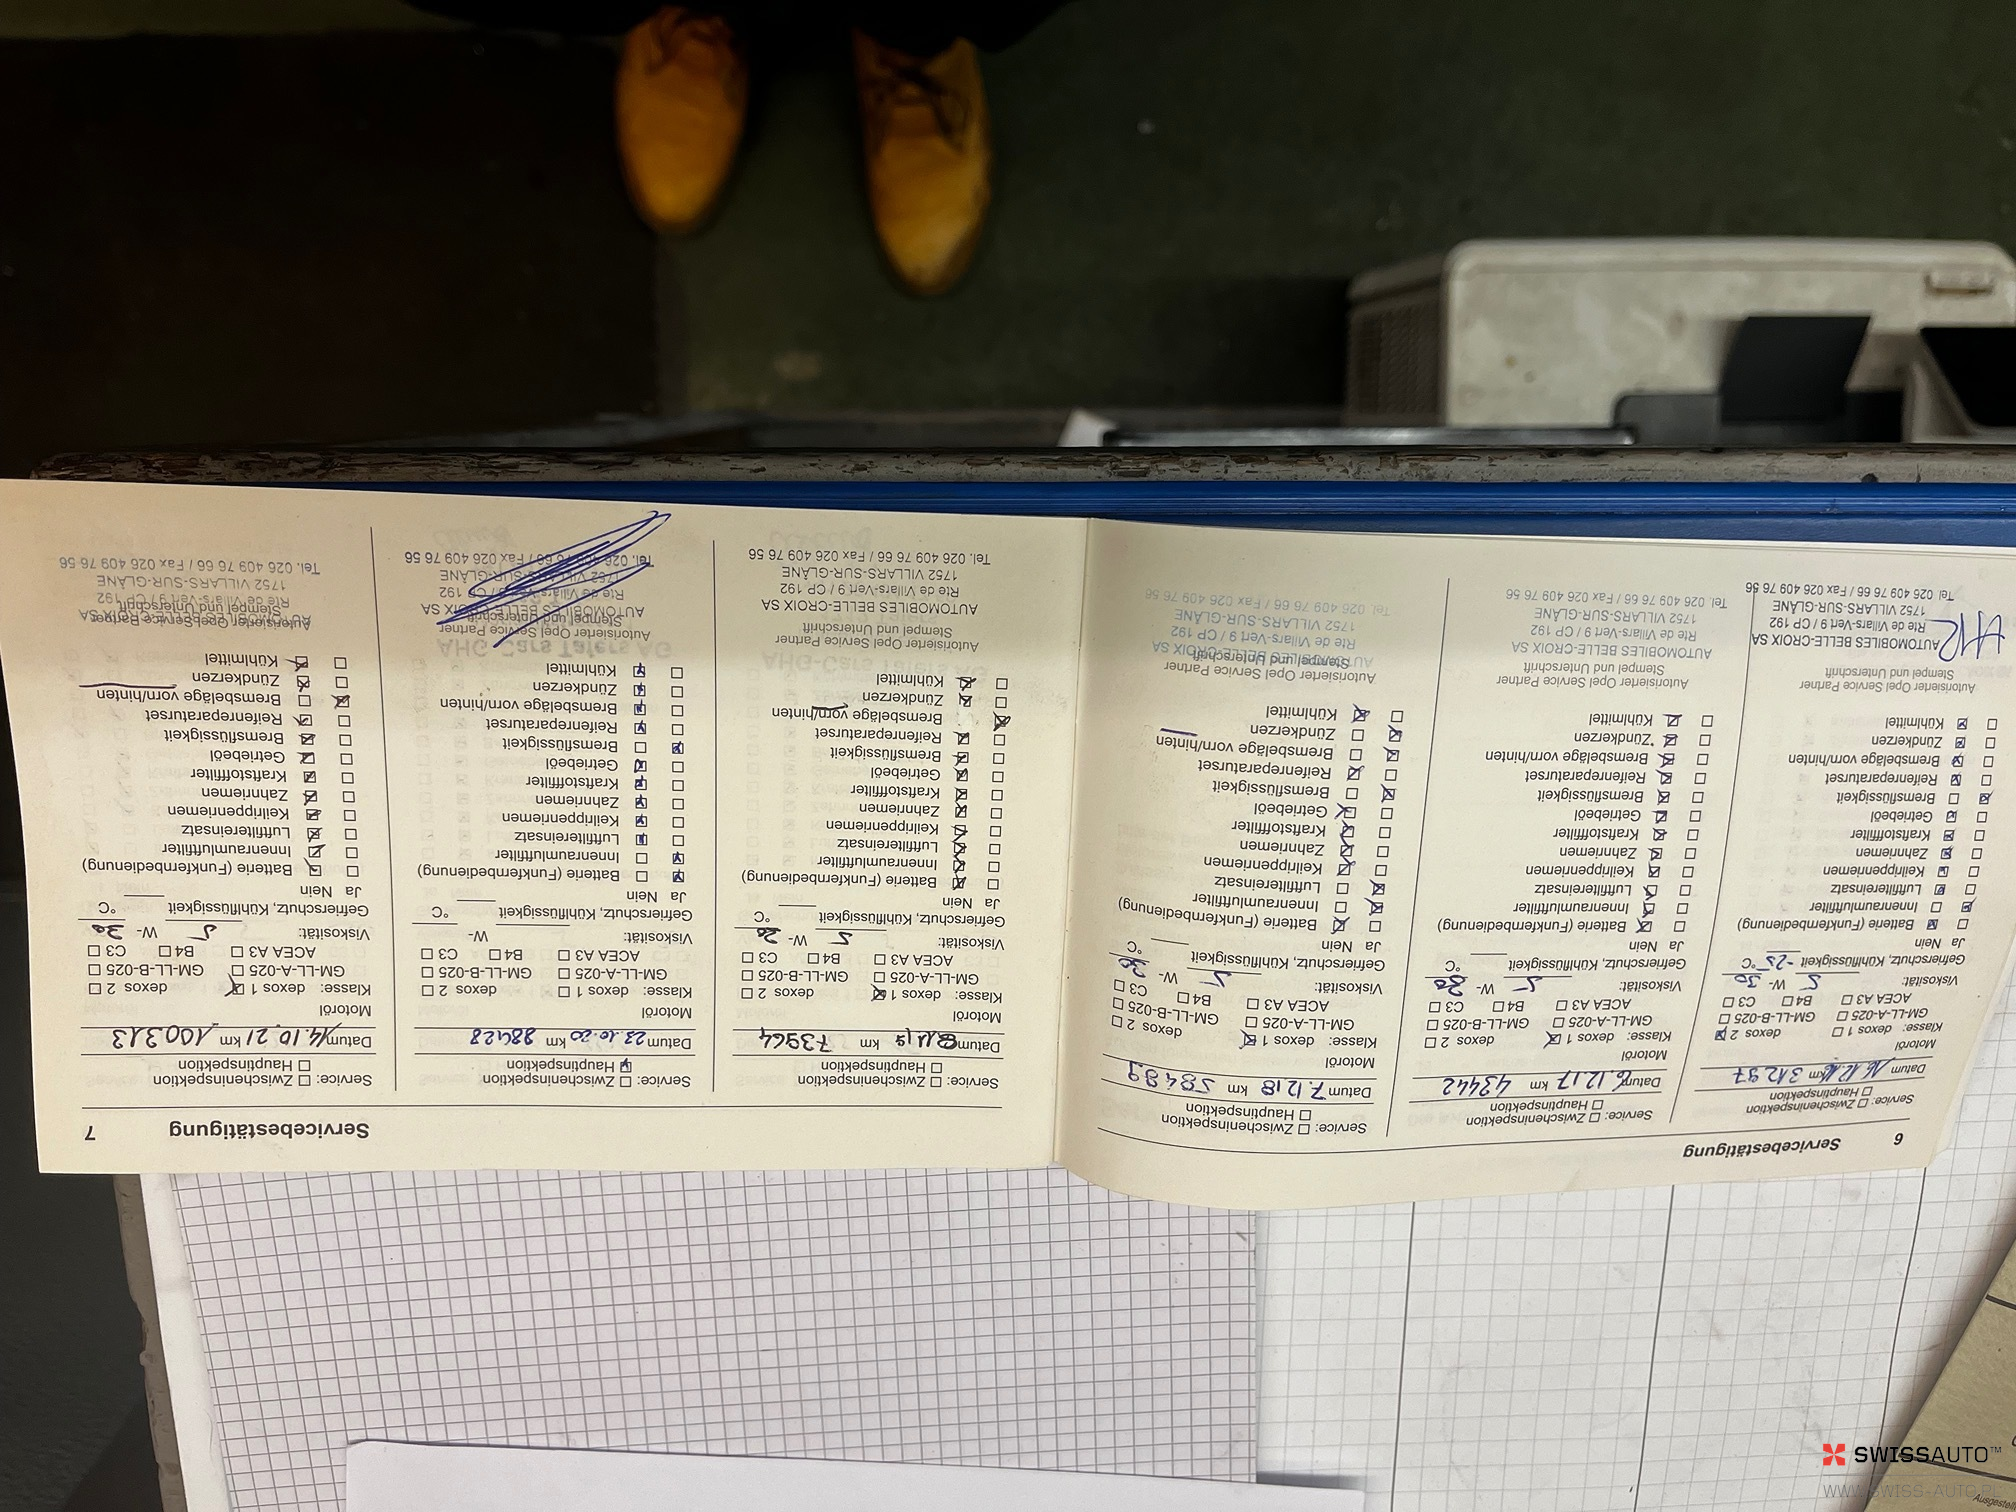 6 Servicebestätigung
Service: Zwischeninspektion
Hauptinspektion
Datum 16.12.16 km 31297
Motoröl
Klasse: dexos 1 dexos 2
GM-LL-A-025 GM-LL-B-025
ACEA A3 B4 C3
Viskosität: 5 W- 30
Gefrierschutz, Kühlflüssigkeit -25 °C
Ja Nein
Batterie (Funkfernbedienung)
Innenraumluftfilter
Luftfiltereinsatz
Keilrippenriemen
Zahnriemen
Kraftstofffilter
Getriebeöl
Bremsflüssigkeit
Reifenreparaturset
Bremsbeläge vorn/hinten
Zündkerzen
Kühlmittel
Autorisierter Opel Service Partner
Stempel und Unterschrift
AUTOMOBILES BELLE-CROIX SA
Rte de Villars-Vert 9 / CP 192
1752 VILLARS-SUR-GLÂNE
Tel. 026 409 76 66 / Fax 026 409 76 56
Service: Zwischeninspektion
Hauptinspektion
Datum 6.12.17 km 43442
Motoröl
Klasse: dexos 1 dexos 2
GM-LL-A-025 GM-LL-B-025
ACEA A3 B4 C3
Viskosität: 5 W- 30
Gefrierschutz, Kühlflüssigkeit °C
Ja Nein
Batterie (Funkfernbedienung)
Innenraumluftfilter
Luftfiltereinsatz
Keilrippenriemen
Zahnriemen
Kraftstofffilter
Getriebeöl
Bremsflüssigkeit
Reifenreparaturset
Bremsbeläge vorn/hinten
Zündkerzen
Kühlmittel
Autorisierter Opel Service Partner
Stempel und Unterschrift
AUTOMOBILES BELLE-CROIX SA
Rte de Villars-Vert 9 / CP 192
1752 VILLARS-SUR-GLÂNE
Tel. 026 409 76 66 / Fax 026 409 76 56
Service: Zwischeninspektion
Hauptinspektion
Datum 7.12.18 km 58489
Motoröl
Klasse: dexos 1 dexos 2
GM-LL-A-025 GM-LL-B-025
ACEA A3 B4 C3
Viskosität: 5 W- 30
Gefrierschutz, Kühlflüssigkeit °C
Ja Nein
Batterie (Funkfernbedienung)
Innenraumluftfilter
Luftfiltereinsatz
Keilrippenriemen
Zahnriemen
Kraftstofffilter
Getriebeöl
Bremsflüssigkeit
Reifenreparaturset
Bremsbeläge vorn/hinten
Zündkerzen
Kühlmittel
Autorisierter Opel Service Partner
Stempel und Unterschrift
AUTOMOBILES BELLE-CROIX SA
Rte de Villars-Vert 9 / CP 192
1752 VILLARS-SUR-GLÂNE
Tel. 026 409 76 66 / Fax 026 409 76 56
Servicebestätigung 7
Service: Zwischeninspektion
Hauptinspektion
Datum 8.11.19 km 73964
Motoröl
Klasse: dexos 1 dexos 2
GM-LL-A-025 GM-LL-B-025
ACEA A3 B4 C3
Viskosität: 5 W- 20
Gefrierschutz, Kühlflüssigkeit °C
Ja Nein
Batterie (Funkfernbedienung)
Innenraumluftfilter
Luftfiltereinsatz
Keilrippenriemen
Zahnriemen
Kraftstofffilter
Getriebeöl
Bremsflüssigkeit
Reifenreparaturset
Bremsbeläge vorn/hinten
Zündkerzen
Kühlmittel
Autorisierter Opel Service Partner
Stempel und Unterschrift
AUTOMOBILES BELLE-CROIX SA
Rte de Villars-Vert 9 / CP 192
1752 VILLARS-SUR-GLÂNE
Tel. 026 409 76 66 / Fax 026 409 76 56
Service: Zwischeninspektion
Hauptinspektion
Datum 23.10.20 km 88428
Motoröl
Klasse: dexos 1 dexos 2
GM-LL-A-025 GM-LL-B-025
ACEA A3 B4 C3
Viskosität: W-
Gefrierschutz, Kühlflüssigkeit °C
Ja Nein
Batterie (Funkfernbedienung)
Innenraumluftfilter
Luftfiltereinsatz
Keilrippenriemen
Zahnriemen
Kraftstofffilter
Getriebeöl
Bremsflüssigkeit
Reifenreparaturset
Bremsbeläge vorn/hinten
Zündkerzen
Kühlmittel
Autorisierter Opel Service Partner
Stempel und Unterschrift
AUTOMOBILES BELLE-CROIX SA
Rte de Villars-Vert 9 / CP 192
1752 VILLARS-SUR-GLÂNE
Tel. 026 409 76 66 / Fax 026 409 76 56
Service: Zwischeninspektion
Hauptinspektion
Datum 14.10.21 km 100313
Motoröl
Klasse: dexos 1 dexos 2
GM-LL-A-025 GM-LL-B-025
ACEA A3 B4 C3
Viskosität: 5 W- 30
Gefrierschutz, Kühlflüssigkeit °C
Ja Nein
Batterie (Funkfernbedienung)
Innenraumluftfilter
Luftfiltereinsatz
Keilrippenriemen
Zahnriemen
Kraftstofffilter
Getriebeöl
Bremsflüssigkeit
Reifenreparaturset
Bremsbeläge vorn/hinten
Zündkerzen
Kühlmittel
Autorisierter Opel Service Partner
Stempel und Unterschrift
AUTOMOBILES BELLE-CROIX SA
Rte de Villars-Vert 9 / CP 192
1752 VILLARS-SUR-GLÂNE
Tel. 026 409 76 66 / Fax 026 409 76 56
SWISSAUTO™